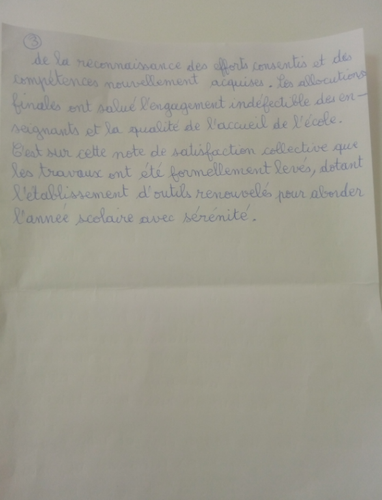 3
de la reconnaissance des efforts consentis et des
compétences nouvellement acquises. Les allocutions
finales ont salué l'engagement indéfectible des en-
seignants et la qualité de l'accueil de l'école.
C'est sur cette note de satisfaction collective que
les travaux ont été formellement levés, dotant
l'établissement d'outils renouvelés pour aborder
l'année scolaire avec sérénité.